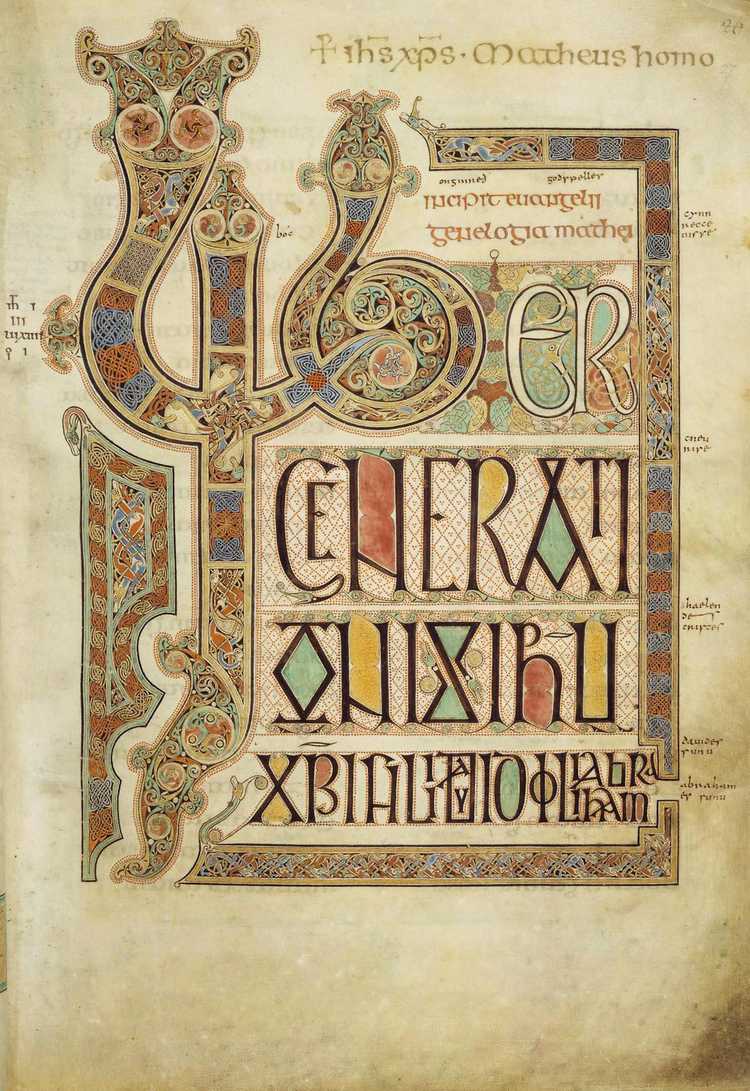 + ih̄s xp̄s · Matheus homo
onginneð godspelles
incipit euangelii
genelogia mathei
boc
LIBER
GENERATI
ONIS IHU
XPI FILII DAUID FILII ABRA
HAM
haelen
des
cristes
dauides
sunu
abraham
es sunu